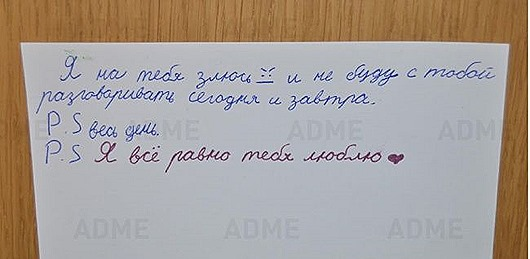 Я на тебя злюсь и не буду с тобой
разговаривать сегодня и завтра.
P.S весь день.
P.S Я всё равно тебя люблю ❤
ADME ADME ADME
ADME ADME ADME